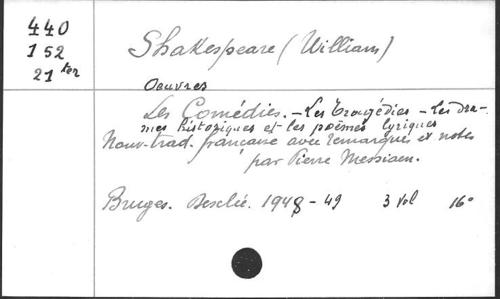 440
152
21 ter
Shakespeare (William)
Oeuvres
Les Comédies. - Les Tragédies - les dra-
mes historiques et les poèmes lyriques
Nouv. trad. française avec remarques et notes
par Pierre Messiaen.
Bruges. Desclée. 1948 - 49 3 vol 16°